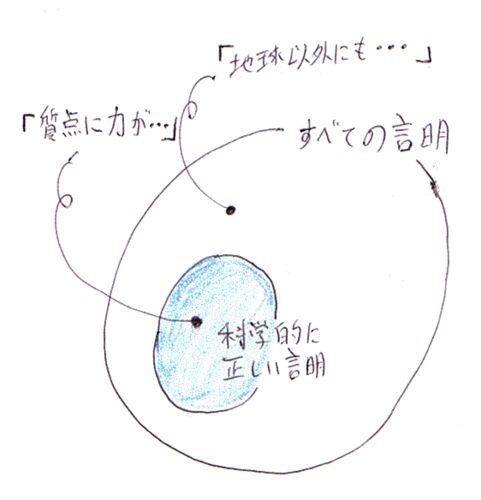 「地球以外にも・・・」
「質点に力が・・・」
すべての言明
科学的に
正しい言明